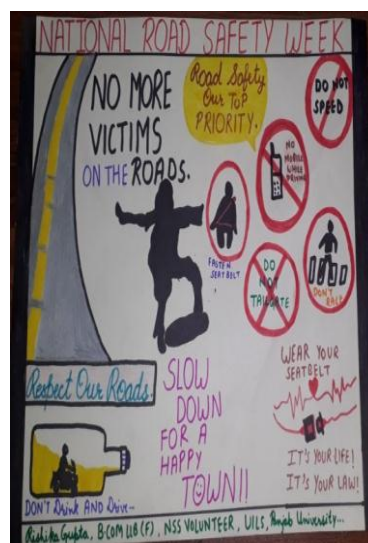 NATIONAL ROAD SAFETY WEEK
NO MORE
VICTIMS
ON THE ROADS.
Road Safety
Our ToP
PRIORITY.
DO NOT
SPEED
NO
MOBILE
WHILE
DRIVING
FASTEN
SEATBELT
DO
NOT
TAILGATE
DON'T
Respect Our Roads.
SLOW
DOWN
FOR A
HAPPY
TOWN!!
WEAR YOUR
SEATBELT
IT'S YOUR LIFE!
IT'S YOUR LAW!
DON'T Drink AND Drive-
Rishika Gupta, B.COM LLB (F), NSS VOLUNTEER, UILS, Panjab University...